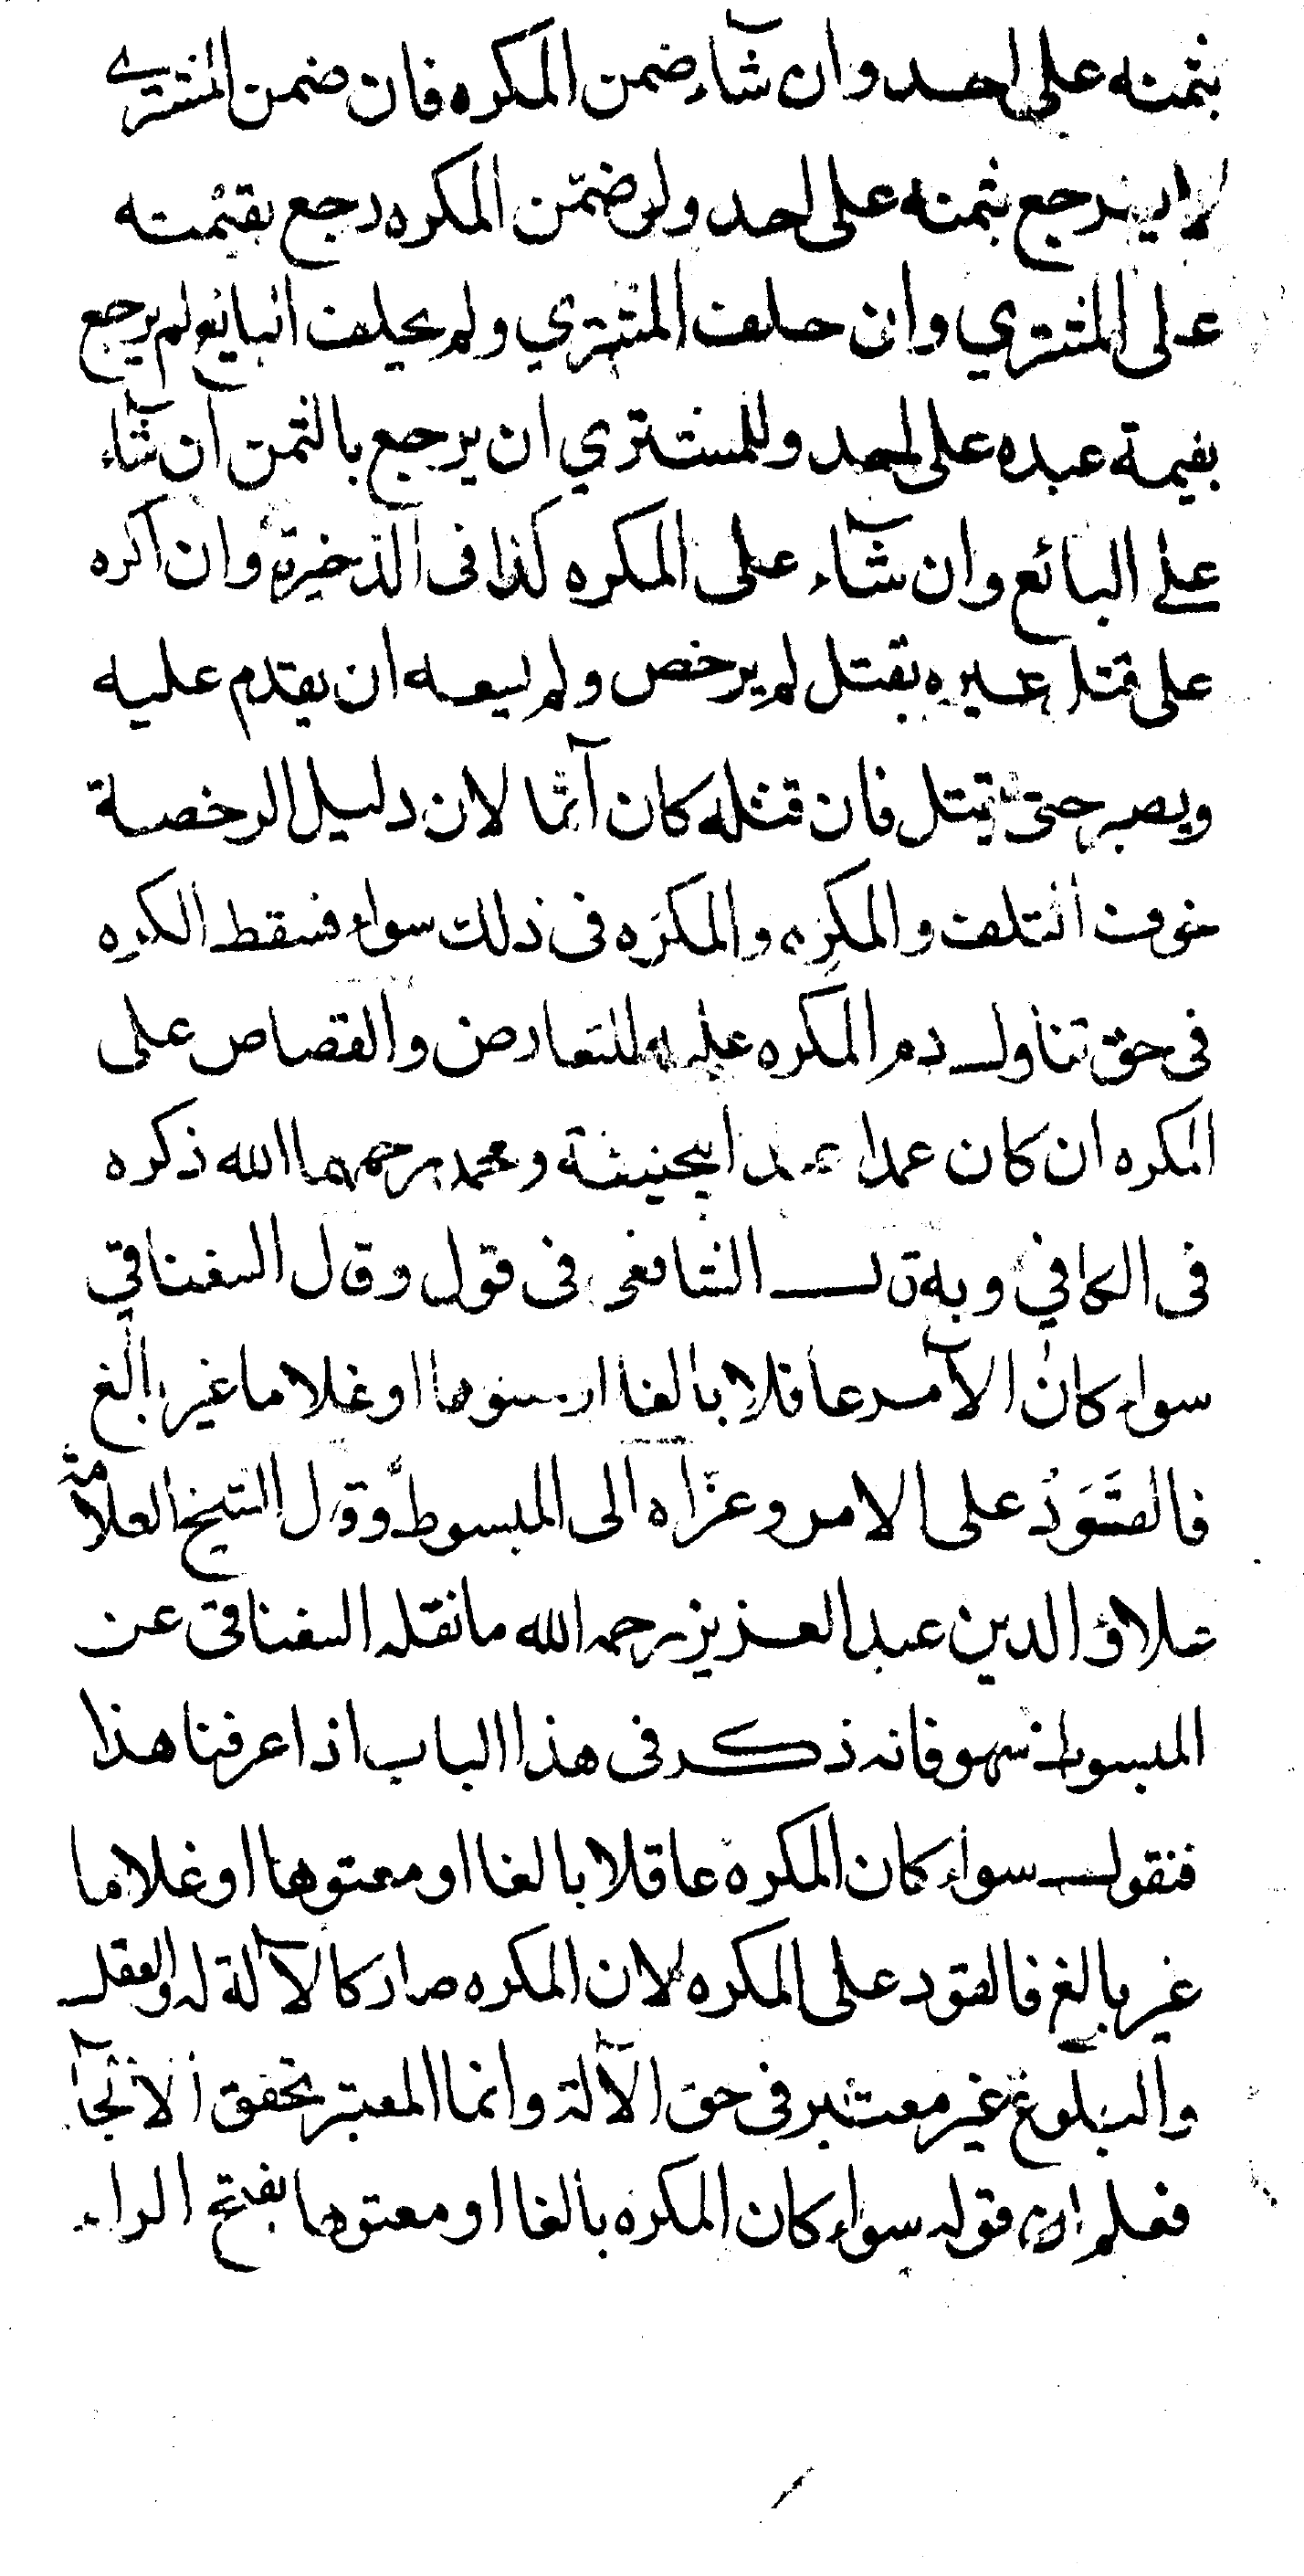 بثمنه على احد وان شآء ضمن المكره فان ضمن المشتري
لا يرجع بثمنه على احد ولو ضمّن المكره رجع بقيمته
على المشتري وان حلف المشتري ولم يحلف البايع لم يرجع
بقيمة عبده على احد وللمشتري ان يرجع بالثمن ان شآء
على البائع وان شآء على المكره كذا فى الذخيرة وان اكره
على قتل غيره بقتل لم يرخص ولم يسعه ان يقدم عليه
ويصبر حتى يقتل فان قتله كان آثما لان دليل الرخصة
خوف التلف والمكرِه والمكرَه فى ذلك سواء فسقط الكره
فى حق تناول دم المكره عليه للتعارض والقصاص على
المكره ان كان عمدا عند ابيحنيفة ومحمد رحمهما الله ذكره
فى الكافي وبه قال الشافعى فى قول وقال السغناقي
سواء كان الآمر عاقلا بالغا او معتوها او غلاما غير بالغ
فالقَوَد على الامر وعزاه الى المبسوط وقال الشيخ العلامة
علاؤ الدين عبد العزيز رحمه الله ما نقله السغناقى عن
المبسوط سهو فانه ذكر فى هذا الباب اذا عرفنا هذا
فنقول سواء كان المكره عاقلا بالغا او معتوها او غلاما
غير بالغ فالقود على المكره لان المكره صار كالآلة له والعقل
والبلوغ غير معتبر فى حق الآلة وانما المعتبر تحقق الالجآ
فعلم ان قوله سواء كان المكره بالغا او معتوها بفتح الراء